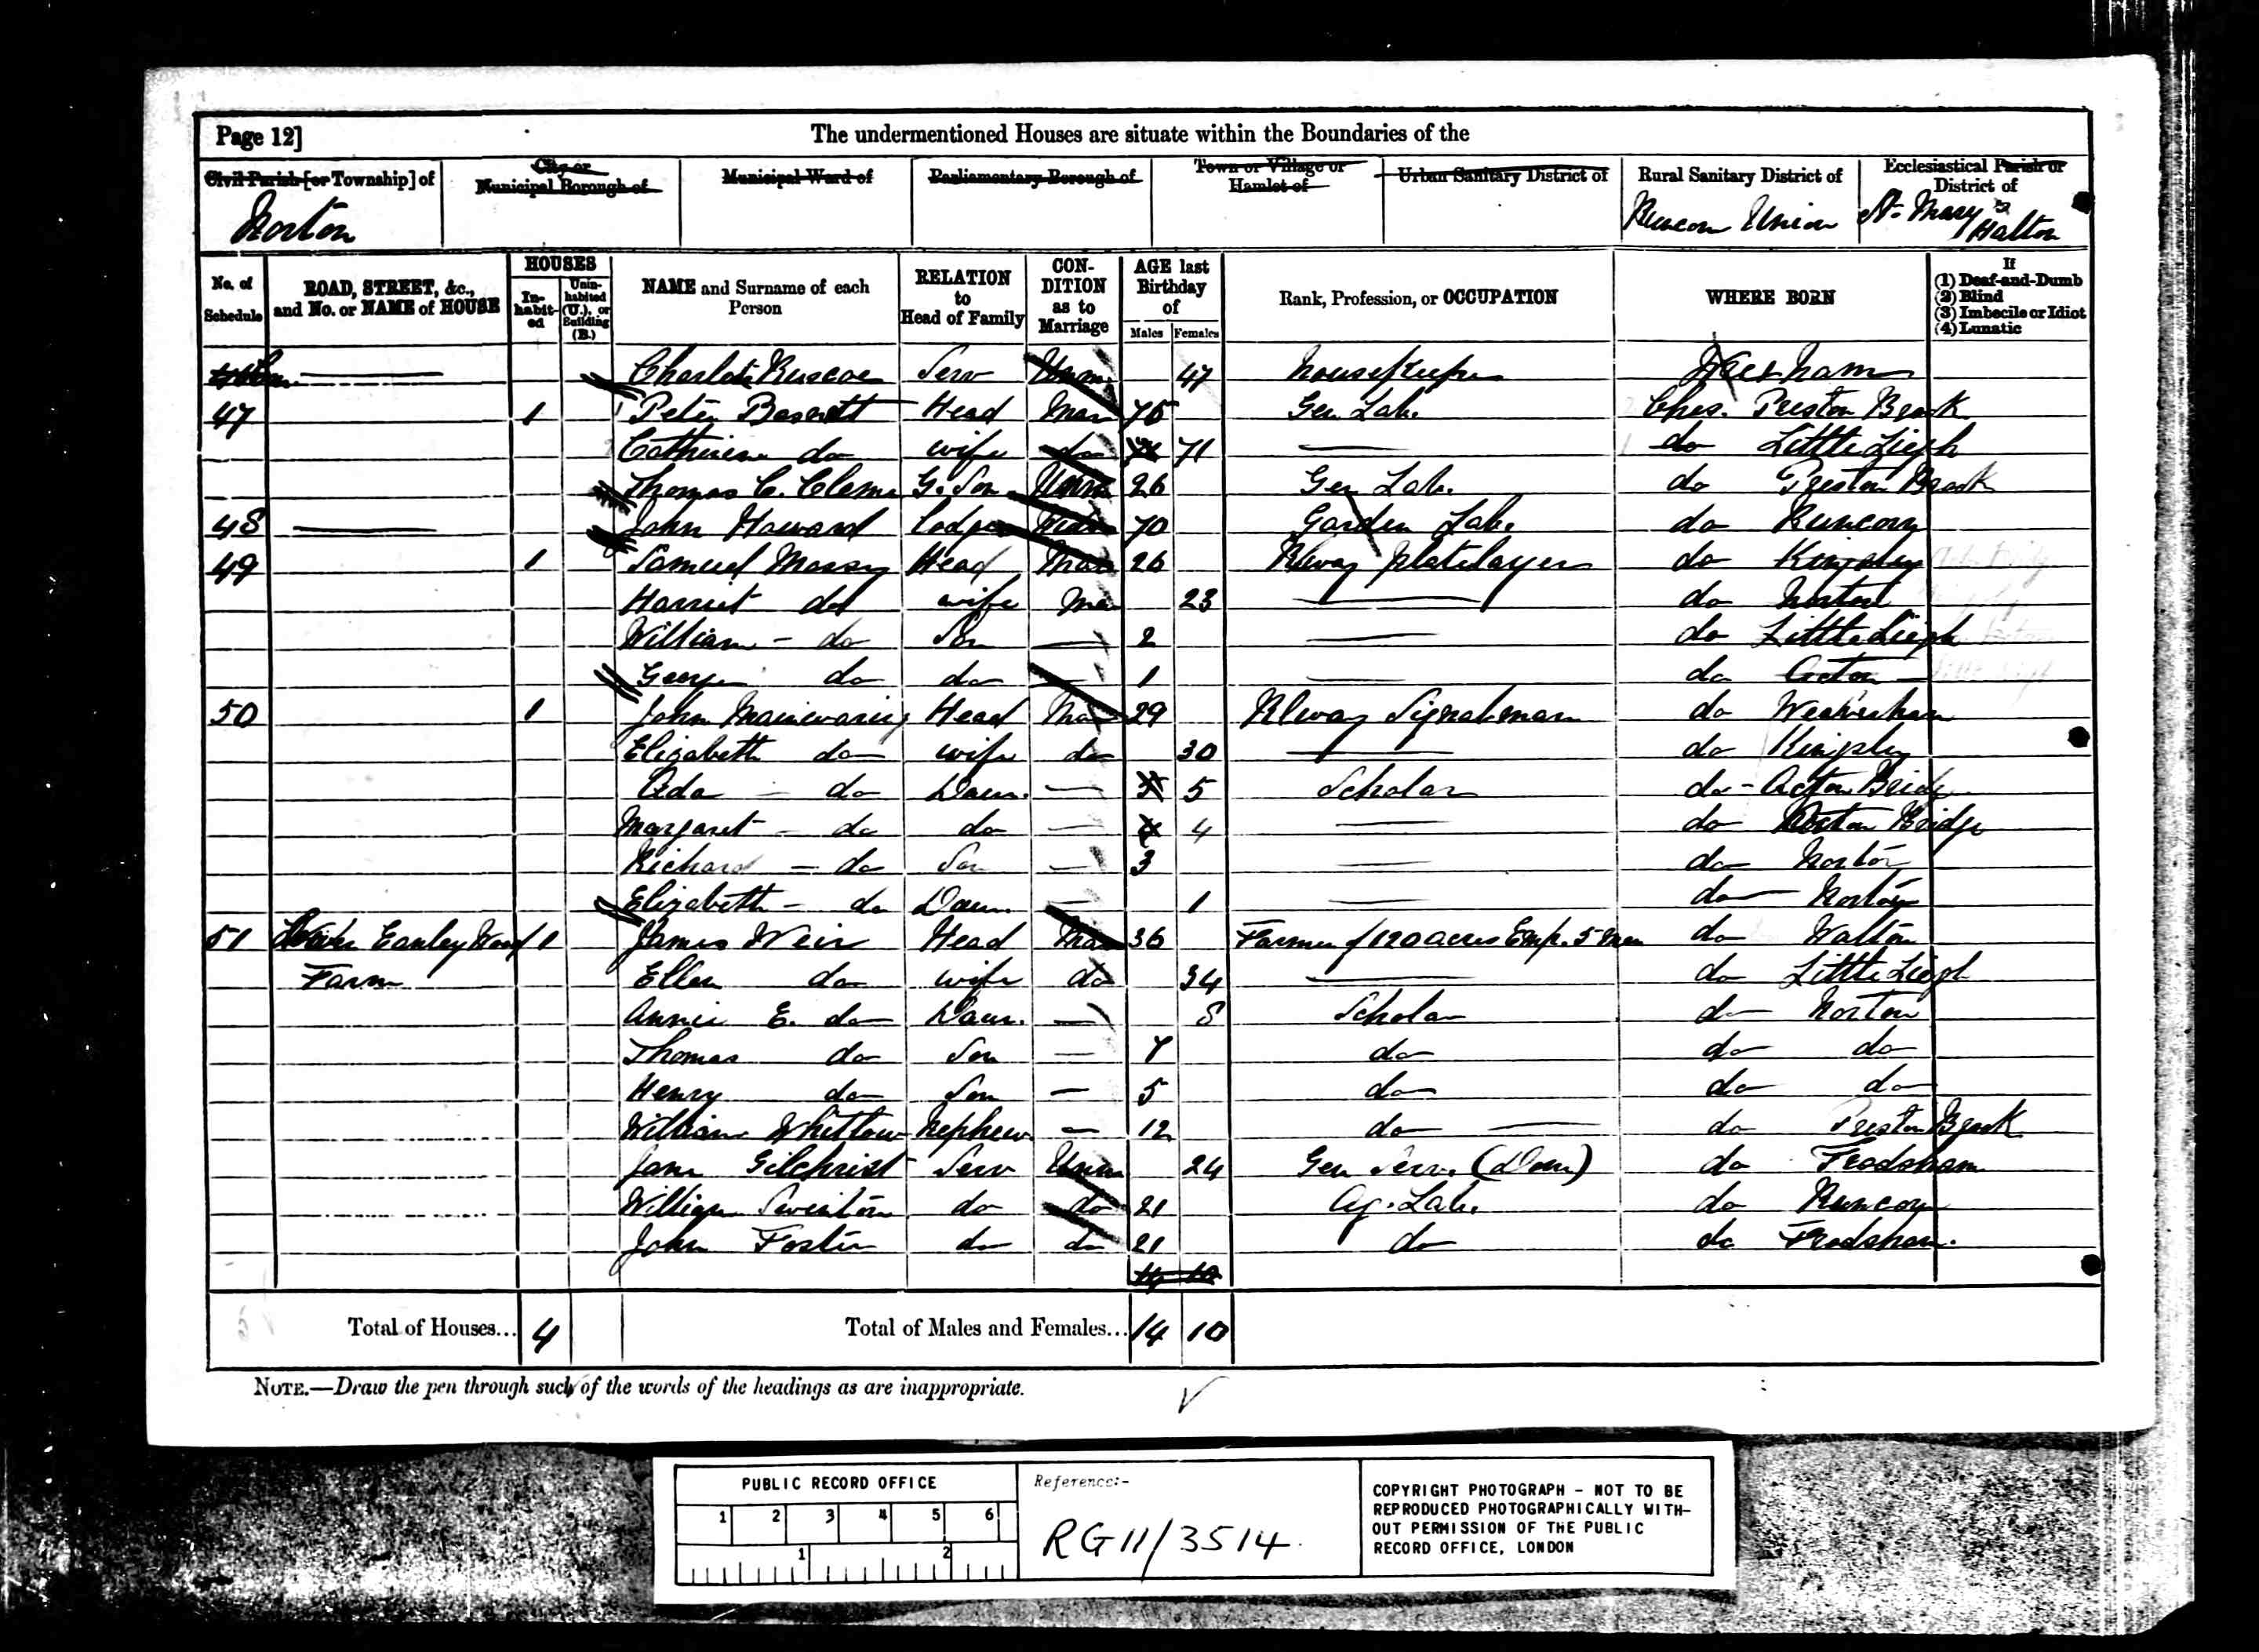 Page 12] The undermentioned Houses are situate within the Boundaries of the
Civil Parish [or Township] of City or Municipal Borough of Municipal Ward of Parliamentary Borough of Town or Village or Hamlet of Urban Sanitary District of Rural Sanitary District of Ecclesiastical Parish or District of
Norton Runcorn Union St. Mary's Halton
No. of Schedule ROAD, STREET, &c., and No. or NAME of HOUSE HOUSES In-habit-ed Unin-habited (U.), or Building (B.) NAME and Surname of each Person RELATION to Head of Family CON-DITION as to Marriage AGE last Birthday of Males Females Rank, Profession, or OCCUPATION WHERE BORN If (1) Deaf-and-Dumb (2) Blind (3) Imbecile or Idiot (4) Lunatic
Ruscoe Serv Unm 47 Housekeeper
47 1 Peter Head Mar 75 Gen Lab. Ches. Preston Brook
Catherine do wife do 71 do Little Liegh
Thomas C. G. Son Unm 26 Gen Lab. do Preston Brook
48 John Howard lodger 70 Garden Lab. do Runcorn
49 1 Samuel Massey Head Mar 26 Rlway platelayer do Kingsley
Harriet do wife Mar 23 do Norton
William - do Son 2 do Little Liegh
George do do 1 do Acton
50 1 John Mainwaring Head Mar 29 Rlway Signalman do Weaverham
Elizabeth do wife do 30 do Kingsley
Ada - do Daur. 5 Scholar do - Acton Bridge
Margaret - do do 4 do Acton Bridge
Richard - do Son 3 do Norton
Elizabeth - do Daur. 1 do Norton
51 1 James Weir Head Mar 36 Farmer of 120 acres Emp. 5 men do Walton
Farm Ellen do wife do 34 do Little Liegh
Annie E. do Daur. 8 Scholar do Norton
Thomas do Son 7 do do do
Henry do Son 5 do do do
William Whitlow Nephew 12 do do Preston Brook
Jane Gilchrist Serv Unm 24 Gen Serv. (Dom) do Frodsham
William Swinton do do 21 Ag. Lab. do Runcorn
John Foster do do 21 do do Frodsham.
14 10
Total of Houses... 4 Total of Males and Females... 14 10
NOTE.—Draw the pen through such of the words of the headings as are inappropriate.
PUBLIC RECORD OFFICE
1 2 3 4 5 6
1 2
Reference:-
RG11/3514
COPYRIGHT PHOTOGRAPH - NOT TO BE
REPRODUCED PHOTOGRAPHICALLY WITH-
OUT PERMISSION OF THE PUBLIC
RECORD OFFICE, LONDON